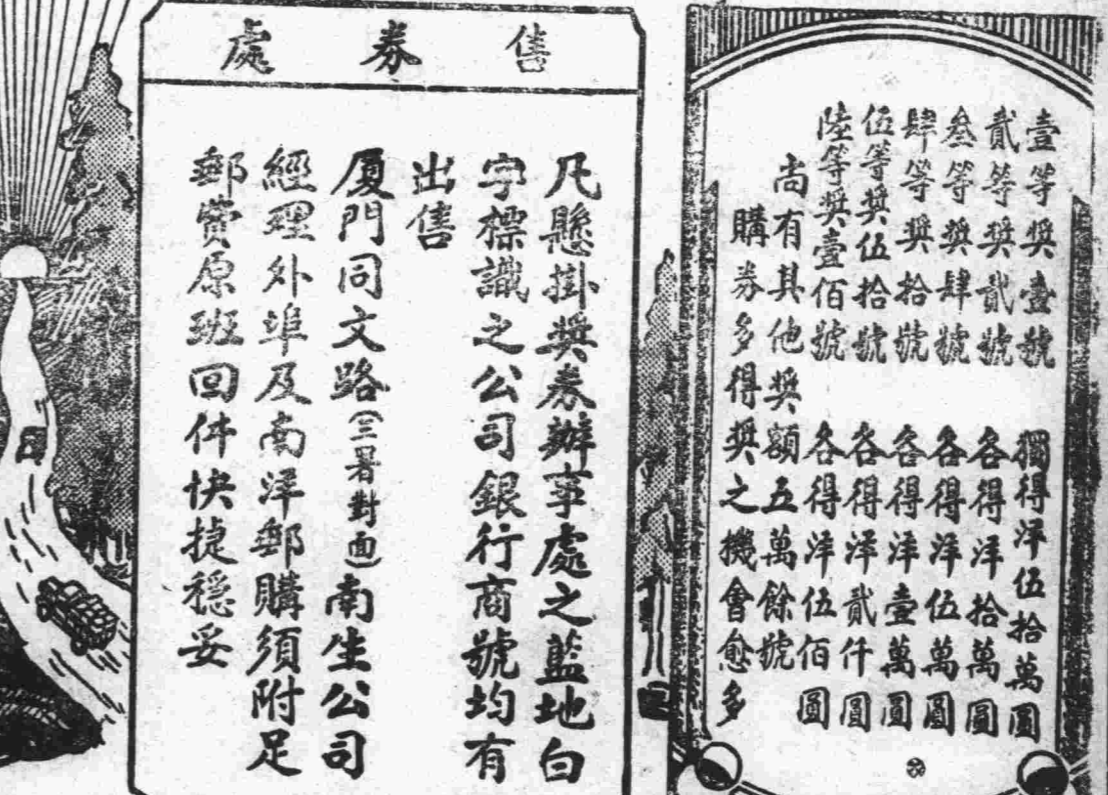 壹等獎壹號 獨得洋伍拾萬圓
貳等獎貳號 各得洋拾萬圓
叁等獎肆號 各得洋伍萬圓
肆等獎拾號 各得洋壹萬圓
伍等獎伍拾號 各得洋貳仟圓
陸等獎壹佰號 各得洋伍佰圓
尚有其他獎額五萬餘號
購券多得獎之機會愈多
售券處
凡懸掛獎券辦事處之藍地白
字標識之公司銀行商號均有
出售
厦門同文路(三署對面)南生公司
經理外埠及南洋郵購須附足
郵費原班回件快捷穩妥